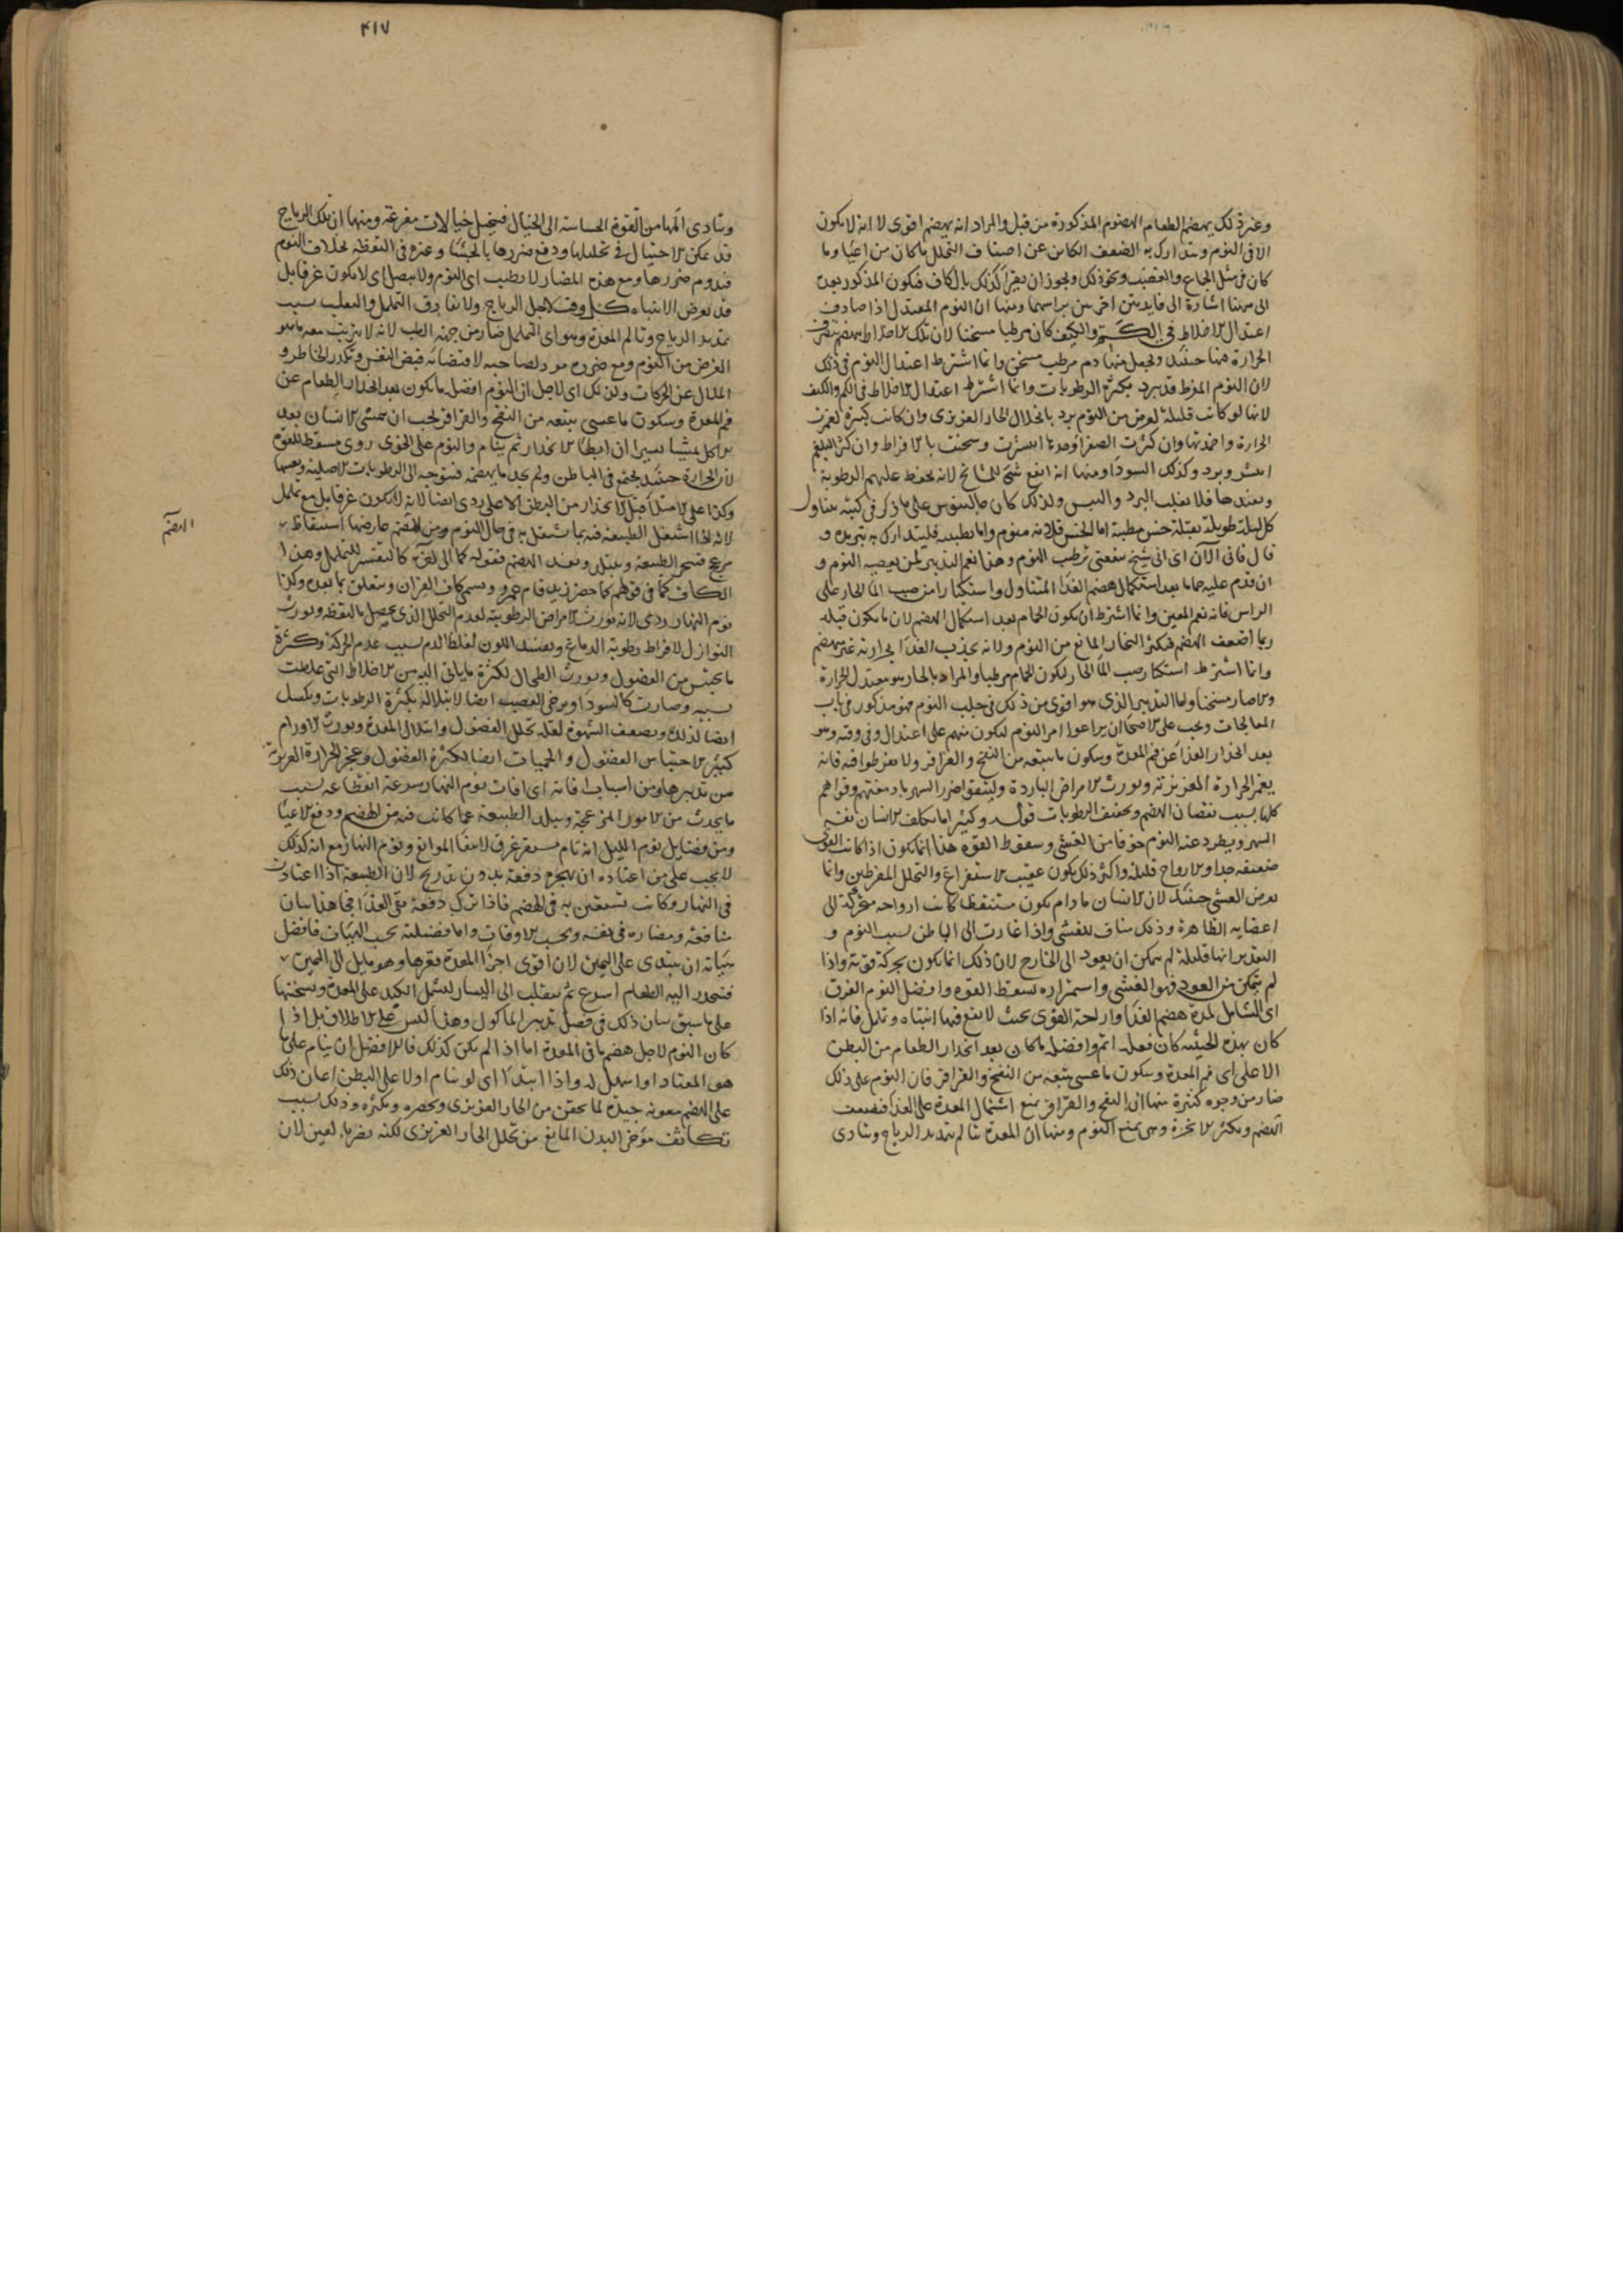 وغير ذلك يهضم الطعام الهضوم المذكورة من قبل والمراد انه يهضم اقوى لا انه لا يكون
الا فى النوم ويتدارك به الضعف الكائن عن اصناف التحلل ما كان من اعيا وما
كان من مثل الجماع والغضب ونحو ذلك ويجوز ان يقرا كذلك بالكاف فيكون المذكور بعده
الى ههنا اشارة الى فايدتين اخريين براسهما ومنها ان النوم المعتدل اذا صادف
اعتدال الاخلاط فى الكم والكيف كان مرطبا مسخنا لان تلك الاخلاط ينهضم بتصرف
الحرارة فيها حينئذ ويحصل منها دم مرطب مسخن وانما اشترط اعتدال النوم فى ذلك
لان النوم المفرط قد يبرد بكثرة الرطوبات وانما اشترط اعتدال الاخلاط فى الكم والكيف
لانها لو كانت قليلة لعرض من النوم برد بانحلال الحار الغريزى وان كانت كثيرة لغمرت
الحرارة واخمدتها وان كثرت الصفراء وحدها انتشرت وسخنت بالافراط وان كثر البلغم
انتشر وبرد وكذلك السوداء ومنها انه انفع شئ للمشائخ لانه يحفظ عليهم الرطوبة
ويعيدها فلا يغلب البرد واليبس ولذلك كان جالينوس على ما ذكر فى كتبه يتناول
كل ليلة طويلة بقيلة خس مطيبة اما الخس فلانه منوم واما تطييبه فليتدارك به تبريده و
قال فانى الآن اى انى شيخ ينفعنى ترطيب النوم وهذا نعم التدبير لمن يعصيه النوم و
ان قدم عليه حماما بعد استكمال هضم الغذا المتناول واستكثارا من صب الما الحار على
الراس فانه نعم المعين وانما اشترط ان يكون الحمام بعد استكمال الهضم لان ما يكون قبله
ربما اضعف الهضم فيكثر البخار المانع من النوم ولانه يجذب الغذا بحرارته غير منهضم
وانما اشترط استكثار صب الما الحار ليكون الحمام مرطبا والمراد بالحار هو معتدل الحرارة
والا صار مسخنا واما التدبير الذى هو اقوى من ذلك فى جلب النوم فهو مذكور فى باب
المعالجات ويجب على الاصحا ان يراعوا امر النوم ليكون منهم على اعتدال وفى وقته وهو
بعد انحدار الغذا عن فم المعدة وسكون ما يتبعه من النفخ والقراقر ولا يفرطوا فيه فانه
يغمر الحرارة الغريزية ويورث الامراض الباردة وليتقوا ضرر السهر بادمغتهم وقواهم
كلها بسبب نقصان الهضم وتجفيف الرطوبات قوله وكثيرا ما يتكلف الانسان نفسه
السهر ويطرد عنه النوم خوفا من الغشى وسقوط القوة هذا انما يكون اذا كانت القوى
ضعيفة جدا والارواح قليلة واكثر ذلك يكون عقيب الاستفراغ والتحلل المفرطين وانما
يعرض الغشى حينئذ لان الانسان ما دام يكون متيقظا كانت ارواحه متحركة الى
اعضايه الظاهرة وذلك مناف للغشى واذا غارت الى الباطن بسبب النوم و
التقدير انها قليلة لم يمكن ان يعود الى الخارج لان ذلك انما يكون بحركة قوية واذا
لم يتمكن من العود فهو الغشى واستمراره لسقوط القوة وافضل النوم الغرق
اى الشامل لمدة هضم الغذا واراحة القوى بحيث لا يقع فيها انتباه وتململ فانه اذا
كان بهذه الحيثية كان فعله اتم وافضله ما كان بعد انحدار الطعام من البطن
الاعلى اى فم المعدة وسكون ما عسى يتبعه من النفخ والقراقر فان النوم على ذلك
ضار من وجوه كثيرة منها ان النفخ والقراقر يمنع اشتمال المعدة على الغذا فيضعف
الهضم ويكثر الابخرة وهى يمنع النوم ومنها ان المعدة يتالم بتمديد الرياح ويتادى
۴۱۷
ويتادى المها من القوة الحساسة الى الخيال فيتخيل خيالات مفزعة ومنها ان تلك الرياح
قد يمكن الاحتيال فى تحليلها ودفع ضررها بالجشا وغيره فى اليقظة بخلاف النوم
فيدوم ضررها ومع هذه المضار لا يطيب اى النوم ولا يتصل اى لا يكون غرقا بل
قد يعرض الانتباه كل وقت لاجل الرياح ولا يفارق التململ والتقلب بسبب
تمديد الرياح وتالم المعدة وهو اى التململ ضار من جهة الطب لانه لا يترتب معه ما هو
الغرض من النوم ومع ضرره مؤذ لصاحبه لاقتضائه قبض النفس وتكدر الخاطر و
الملال عن الحركات ولذلك اى لاجل ان النوم افضل ما يكون بعد انحدار الطعام عن
فم المعدة وسكون ما عسى يتبعه من النفخ والقراقر يجب ان يتمشى الانسان بعد
الاكل مشيا يسيرا ان ابطا الانحدار ثم ينام والنوم على الخوى ردى مسقط للقوة
لان الحرارة حينئذ يجتمع فى الباطن ولم يجد ما يهضمه فيتوجه الى الرطوبات الاصلية ويعبها
وكذا على الامتلا قبل الانحدار من البطن الاعلى ردى ايضا لانه لا يكون غرقا بل مع تململ
لانه اذا اشتغل الطبيعة فيه بما يشتغل به فى حال النوم من الهضم عارضها استيقاظ
الهضم
مزعج فيتحير الطبيعة ويتبلد ويفسد الهضم فقوله كما الى اخره كالتفسير للتململ وهذا
الكاف كما فى قولهم كما حضر زيد قام عمرو ويسمى كاف القران ويتعلق بما بعده وكذا
نوم النهار ردى لانه يورث الامراض الرطوبية لعدم التحلل الذى يحصل باليقظة ويورث
النوازل لافراط رطوبة الدماغ ويفسد اللون لغلظ الدم بسبب عدم الحركة وكثرة
ما يحتبس من الفضول ويورث الطحال لكثرة ما ياتى اليه من الاخلاط التى غلظت
بسببه وصارت كالسوداء ويرخى العصب ايضا لابتلاله بكثرة الرطوبات ويكسل
ايضا لذلك ويضعف الشهوة لقلة تحلل الفضول وابتلال المعدة ويورث الاورام
كثيرا لاحتباس الفضول والحميات ايضا لكثرة الفضول وعجز الحرارة الغريزية
من تدبيرها ومن اسباب افاته اى افات نوم النهار سرعة انقطاعه بسبب
ما يحدث من الامور المزعجة وتبلد الطبيعة عما كانت فيه من الهضم ودفع الاعيا
ومن فضايل نوم الليل انه تام مستمر غرق لانتفا الموانع ونوم النهار مع انه كذلك
لا يجب على من اعتاده ان يهجره دفعة بدون تدريج لان الطبيعة اذا اعتادت
فى النهار وكانت تستعين به فى الهضم فاذا ترك دفعة بقى الغذا فجا هذا بيان
منافعه ومضاره فى نفسه وبحسب الاوقات واما فضيلته بحسب الهيئات فافضل
هيئاته ان يبتدى على اليمين لان اقوى اجزا المعدة قعرها وهو مايل الى اليمين
فينحدر اليه الطعام اسرع ثم ينقلب الى اليسار ليشتمل الكبد على المعدة ويسخنها
على ما سبق بيان ذلك فى فصل تدبير الماكول وهذا ليس على الاطلاق بل اذا
كان النوم لاجل هضم ما فى المعدة اما اذا لم يكن كذلك فالافضل ان ينام على ما
هو المعتاد او اسهل له واذا ابتدا اى لو نام اولا على البطن اعان ذلك
على الهضم معونة جيدة لما يحقن من الحار الغريزى ويحصره ويكثره وذلك بسبب
تكاثف مؤخر البدن المانع من تحلل الحار الغريزى لكنه يضر بالعين لان